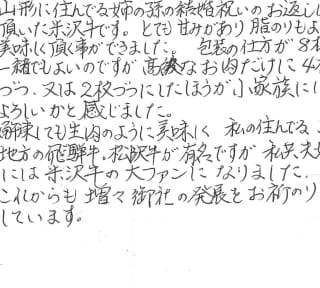 山形に住んでる姉の孫の結婚祝いのお返し
頂いた米沢牛です。とても甘みがあり脂のりもよ
美味しく頂く事ができました。包装の仕方が8枚
一緒でもよいのですが高級なお肉だけに4枚
づつ、又は2枚づつにしたほうが小家族に
よろしいかと感じました。
解凍しても生肉のように美味しく 私の住んでる
地方の飛騨牛・松阪牛が有名ですが 私共夫
には米沢牛の大ファンになりました。
これからも増々御社の発展をお祈り
しています。